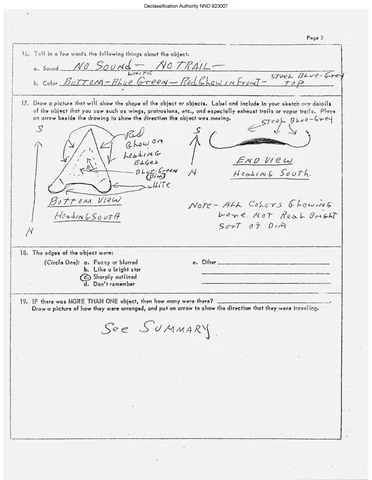 Declassification Authority NND 923007
Page 3
16. Tell in a few words the following things about the object.
a. Sound NO SOUND - NO TRAIL -
b. Color BOTTOM - WHITE BLUE GREEN - Red Glow in Front - STEEL BLUE-Grey TOP
17. Draw a picture that will show the shape of the object or objects. Label and include in your sketch any details
of the object that you saw such as wings, protrusions, etc., and especially exhaust trails or vapor trails. Place
an arrow beside the drawing to show the direction the object was moving.
S
Red
Glow on
Leading
Edges
Blue-Green
(Dim)
White
BOTTOM VIEW
Heading SOUTH
N
S
Steel Blue-Grey
END VIEW
Heading South.
N
Note - ALL Colors Glowing
were NOT Real Bright
Sort of Dim
18. The edges of the object were:
(Circle One): a. Fuzzy or blurred
b. Like a bright star
c. Sharply outlined
d. Don't remember
e. Other
19. IF there was MORE THAN ONE object, then how many were there?
Draw a picture of how they were arranged, and put an arrow to show the direction that they were traveling.
See SUMMARY